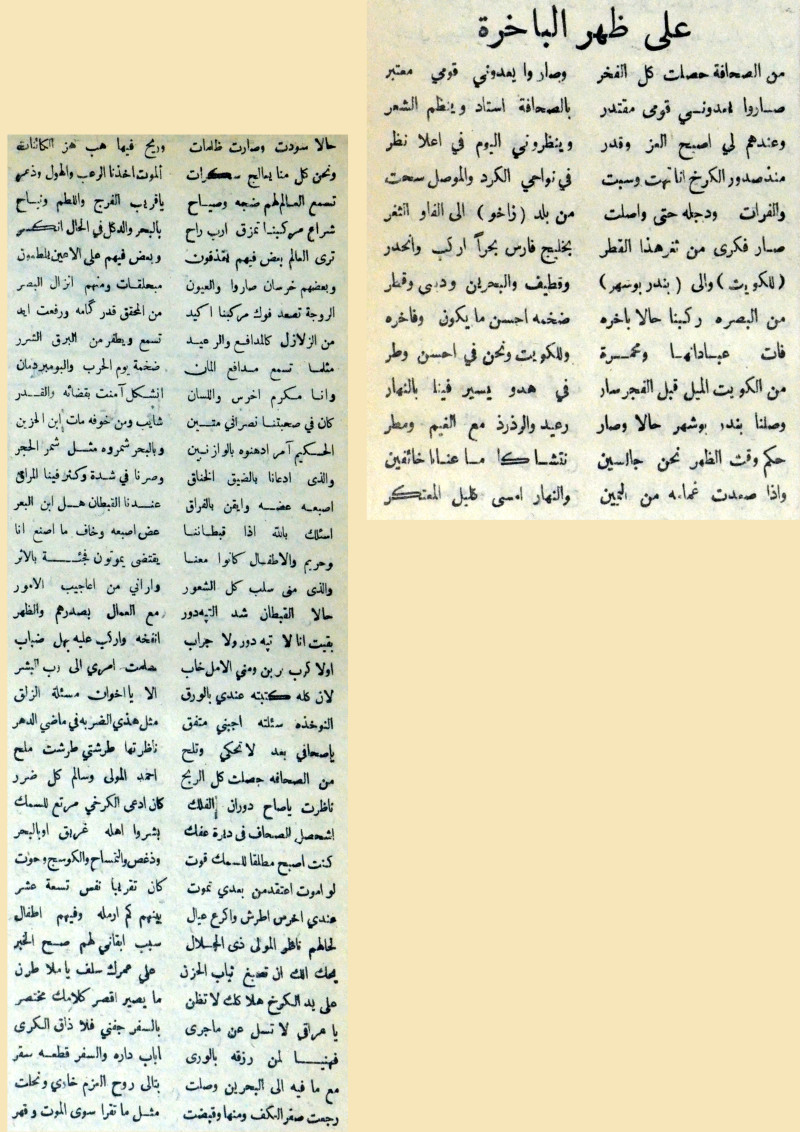 على ظهر الباخرة
من الصحافة حصلت كل الفخر وصاروا يعدوني قومي معتبر
صاروا يعدونسي قومى مقتدر بالصحافة استاد وينظم الشعر
وعندهم لي اصبح العز وقدر وينظروني اليوم في اعلا نظر
منذ صدور الكرخ انا تهت وسبت في نواحي الكرد والموصل سحت
والفرات ودجله حتى واصلت من بلد (زاخو) الى الفاو الثغر
صار فكرى من ثغر هذا القطر بخليج فارس بحراً اركب وانحدر
(للكويت) والى (بندر بوشهر) وقطيف والبحرين ودبى وقطر
من البصره ركبنا حالا باخره ضخمه احسن ما يكون وفاخره
فات عبادانها ومحمرة وللكويت ونحن في احسن وطر
من الكويت الميل قبل الفجر سار في هدو يسير فينا بالنهار
وصلنا بندر بوشهر حالا وصار رعيد والرذرذ مع الغيم ومطر
حكم وقت الظهر نحن جالسين نتشاكا ما عنانا خائفين
واذا صعدت غمامه من اليمين والنهار امسى كليل المعتكر
حالا سودت وصارت ظلمات وريح فيها هب هز الكائنات
ونحن كل منا يعالج سكرات الموت اخذنا الرعب والهول وذعر
تسمع العالم لهم ضجه وصياح ياقريب الفرج واللطم ونياح
شراع مركبنا تمزق ارب راح بالبحر والدكل في الحال انكسر
ترى العالم بعض فيهم يقذفون وبعض فيهم على الاعين يلطمون
وبعضهم خرسان صاروا والعيون مبحلقات ومنهم انزال البصر
الروجة تصعد فوك مركبنا اكيد من المحقق قدر گامه ورفعت ايد
من الزلازل كالمدافع والرعيد تسمع ويطفر من البرق الشرر
مثلما تسمع مدافع المان ضخمة يوم الحرب والبومبردمان
وانا مكرم اخرس واللسان انشكل آمنت بقضائه والقدر
كان في صحبتنا نصراني متين شايب ومن خوفه مات ابن الحزين
الحكيم آمر ادهنوه بالوازنين وبالبحر شمروه مثل شمر الحجر
والذى ادعانا بالضيق الخناق وصرنا في شدة وكثر فينا المراق
اصبعه عضه وايقن بالفراق عندنا القبطان هل ابن البعر
اسئلك بالله اذا قبطاننا عض اصبعه وخاف ما اصنع انا
وحريم والاطفال كانوا معنا يقتضى يموتون فجئة بالاثر
والذى منى سلب كل الشعور واراني من اعاجيب الامور
حالا القبطان شد التيه دور مع العمال بصدرهم والظهر
بقيت انا لا تيه دور ولا جراب انفخه واركب عليه بهل ضباب
اولا كرب بربن ومني الامل خاب سلمت امري الى رب البشر
لان كله كتبته عندي بالورق الا يا اخوان مسئلة الزلق
النوخذه سئلته اجبني متفق مثل هذي الضربه في ماضي الدهر
ياصحافي بعد لا تحكي وتلح ناظرتها طرشتي طرشت ملح
من الصحافه حصلت كل الربح احمد المولى وسالم كل ضرر
ناظرت ياصاح دوران الفلك كان ادعى الكرخي مرتع للسمك
اشحصل الصحاف في ديرة عفك بشروا اهله غريق اوبالبحر
كنت اصبح مطلقا للسمك قوت ودغص والتمساح والكوسج وحوت
لو اموت اعتقد من بعدي تموت كان تقريباً نفس تسعة عشر
عندي اخرس اطرش واكرع عيال بينهم كم ارمله وفيهم اطفال
لحالهم ناظر المولى ذى الجلال سبب ابقاني لهم صح الخبر
يحك الك ان تصبغ ثياب الحزن علي عمرك سلف يا ملا طرن
على يد الكرخ هلا كك لا تظن ما يصير اقصر كلامك مختصر
يا عراقي لا تسل عن ماجرى بالسفر جفني فلا ذاق الكرى
فهنيا لمن رزقه بالورى اباب داره والسفر قطعه سقر
مع ما فيه الى البحرين وصلت بتالى روح العزم خاري ونحلت
رجعت صفر الكف ومنها وقبضت مثل ما تقرا سوى الموت وقهر